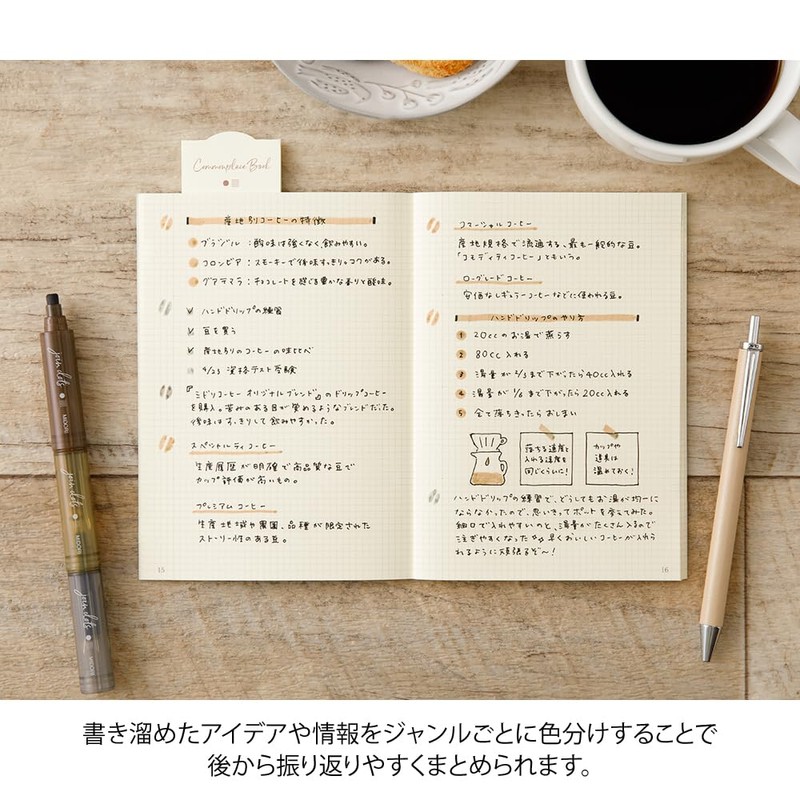 Commonplace Book
産地別コーヒーの特徴
ブラジル：酸味は強くなく飲みやすい。
コロンビア：スモーキーで後味すっきり。コクがある。
グアテマラ：チョコレートを感じる豊かな香りと酸味。
ハンドドリップの練習
豆を買う
産地別のコーヒーの味比べ
4/23 資格テスト受験
『ミドリコーヒー オリジナルブレンド』のドリップコーヒー
を購入。苦みのある目が覚めるようなブレンドだった。
後味はすっきりして飲みやすかった。
スペシャルティコーヒー
生産履歴が明確で高品質な豆で
カップ評価が高いもの。
プレミアムコーヒー
生産地域や農園、品種が限定された
ストーリー性のある豆。
15
コマーシャルコーヒー
産地規格で流通する、最も一般的な豆。
「コモディティコーヒー」ともいう。
ローグレードコーヒー
安価なレギュラーコーヒーなどに使われる豆。
ハンドドリップのやり方
1 20ccのお湯で蒸らす
2 80cc入れる
3 湯量が2/3まで下がったら40cc入れる
4 湯量が1/6まで下がったら20cc入れる
5 全て落ちきったらおしまい
落ちる速度と
入れる速度を
同じくらいに!
カップや
道具は
温めておく!
ハンドドリップの練習で、どうしてもお湯が均一に
ならなかったので、思いきってポットを変えてみた。
細口で入れやすいのと、湯量がたくさん入るので
注ぎやすくなった 早くおいしいコーヒーが入れら
れるように頑張るぞ〜!
16
join dots
MIDORI
join dots
MIDORI
join dots
MIDORI
書き溜めたアイデアや情報をジャンルごとに色分けすることで
後から振り返りやすくまとめられます。